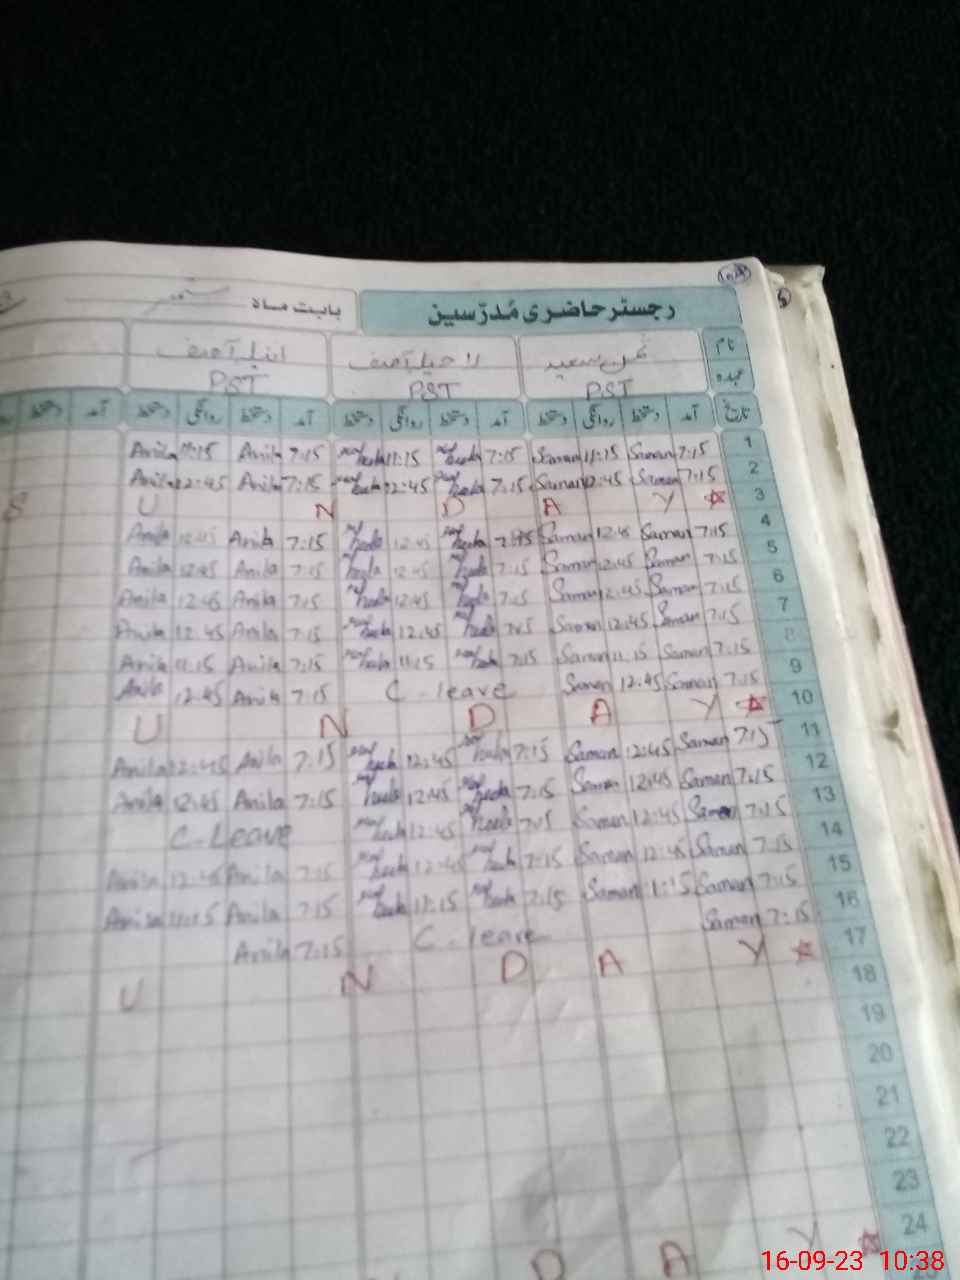 رجسٹر حاضری مُدرّسین
بابت ماہ ستمبر
نام
عہدہ PST PST PST
تاریخ آمد دستخط روانگی دستخط آمد دستخط روانگی دستخط آمد دستخط روانگی دستخط آمد دستخط
Anila 11:15 Anila 7:15 11:15 7:15 Saman 11:15 Saman 7:15 1
Anila 12:45 Anila 7:15 12:45 7:15 Saman 12:45 Saman 7:15 2
S U N D A Y 3
Anila 12:45 Anila 7:15 12:45 Saman 12:45 Saman 7:15 4
Anila 12:45 Anila 7:15 12:45 7:15 Saman 12:45 Saman 7:15 5
Anila 12:45 Anila 7:15 12:45 7:15 Saman 12:45 Saman 7:15 6
Anila 12:45 Anila 7:15 12:45 7:15 Saman 12:45 Saman 7:15 7
Anila 11:15 Anila 7:15 11:15 7:15 Saman 11:15 Saman 7:15 8
Anila 12:45 Anila 7:15 C-leave Saman 12:45 Saman 7:15 9
U N D A Y 10
Anila 12:45 Anila 7:15 12:45 7:15 Saman 12:45 Saman 7:15 11
Anila 12:45 Anila 7:15 12:45 7:15 Saman 12:45 Saman 7:15 12
C-Leave 12:45 7:15 Saman 12:45 Saman 7:15 13
Anila 12:45 Anila 7:15 12:45 7:15 Saman 12:45 Saman 7:15 14
Anila 11:15 Anila 7:15 11:15 7:15 Saman 11:15 Saman 7:15 15
Anila 7:15 C-leave Saman 7:15 16
U N D A Y 17
18
19
20
21
22
23
D A Y 24
16-09-23 10:38